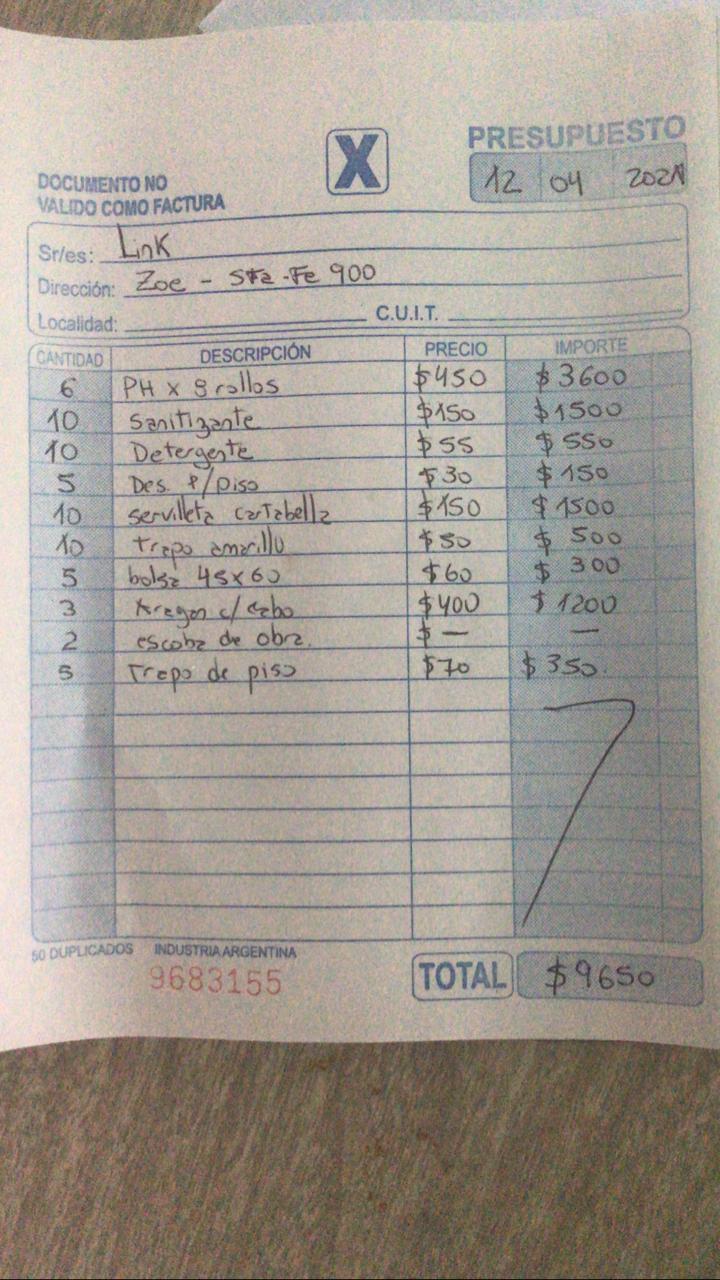 PRESUPUESTO
X
DOCUMENTO NO
VALIDO COMO FACTURA
12 04 2021
Sr/es: Link
Dirección: Zoe - Sta-Fe 900
Localidad: C.U.I.T.
CANTIDAD DESCRIPCIÓN PRECIO IMPORTE
6 PH x 8 rollos $450 $3600
10 Sanitizante $150 $1500
10 Detergente $55 $550
5 Des. p/piso $30 $150
10 servilleta cartabella $150 $1500
10 trapo amarillo $50 $500
5 bolsa 45x60 $60 $300
3 c/cabo $400 $1200
2 escoba de obra. $ — —
5 Trapo de piso $70 $350.
50 DUPLICADOS INDUSTRIA ARGENTINA
9683155
TOTAL $9650